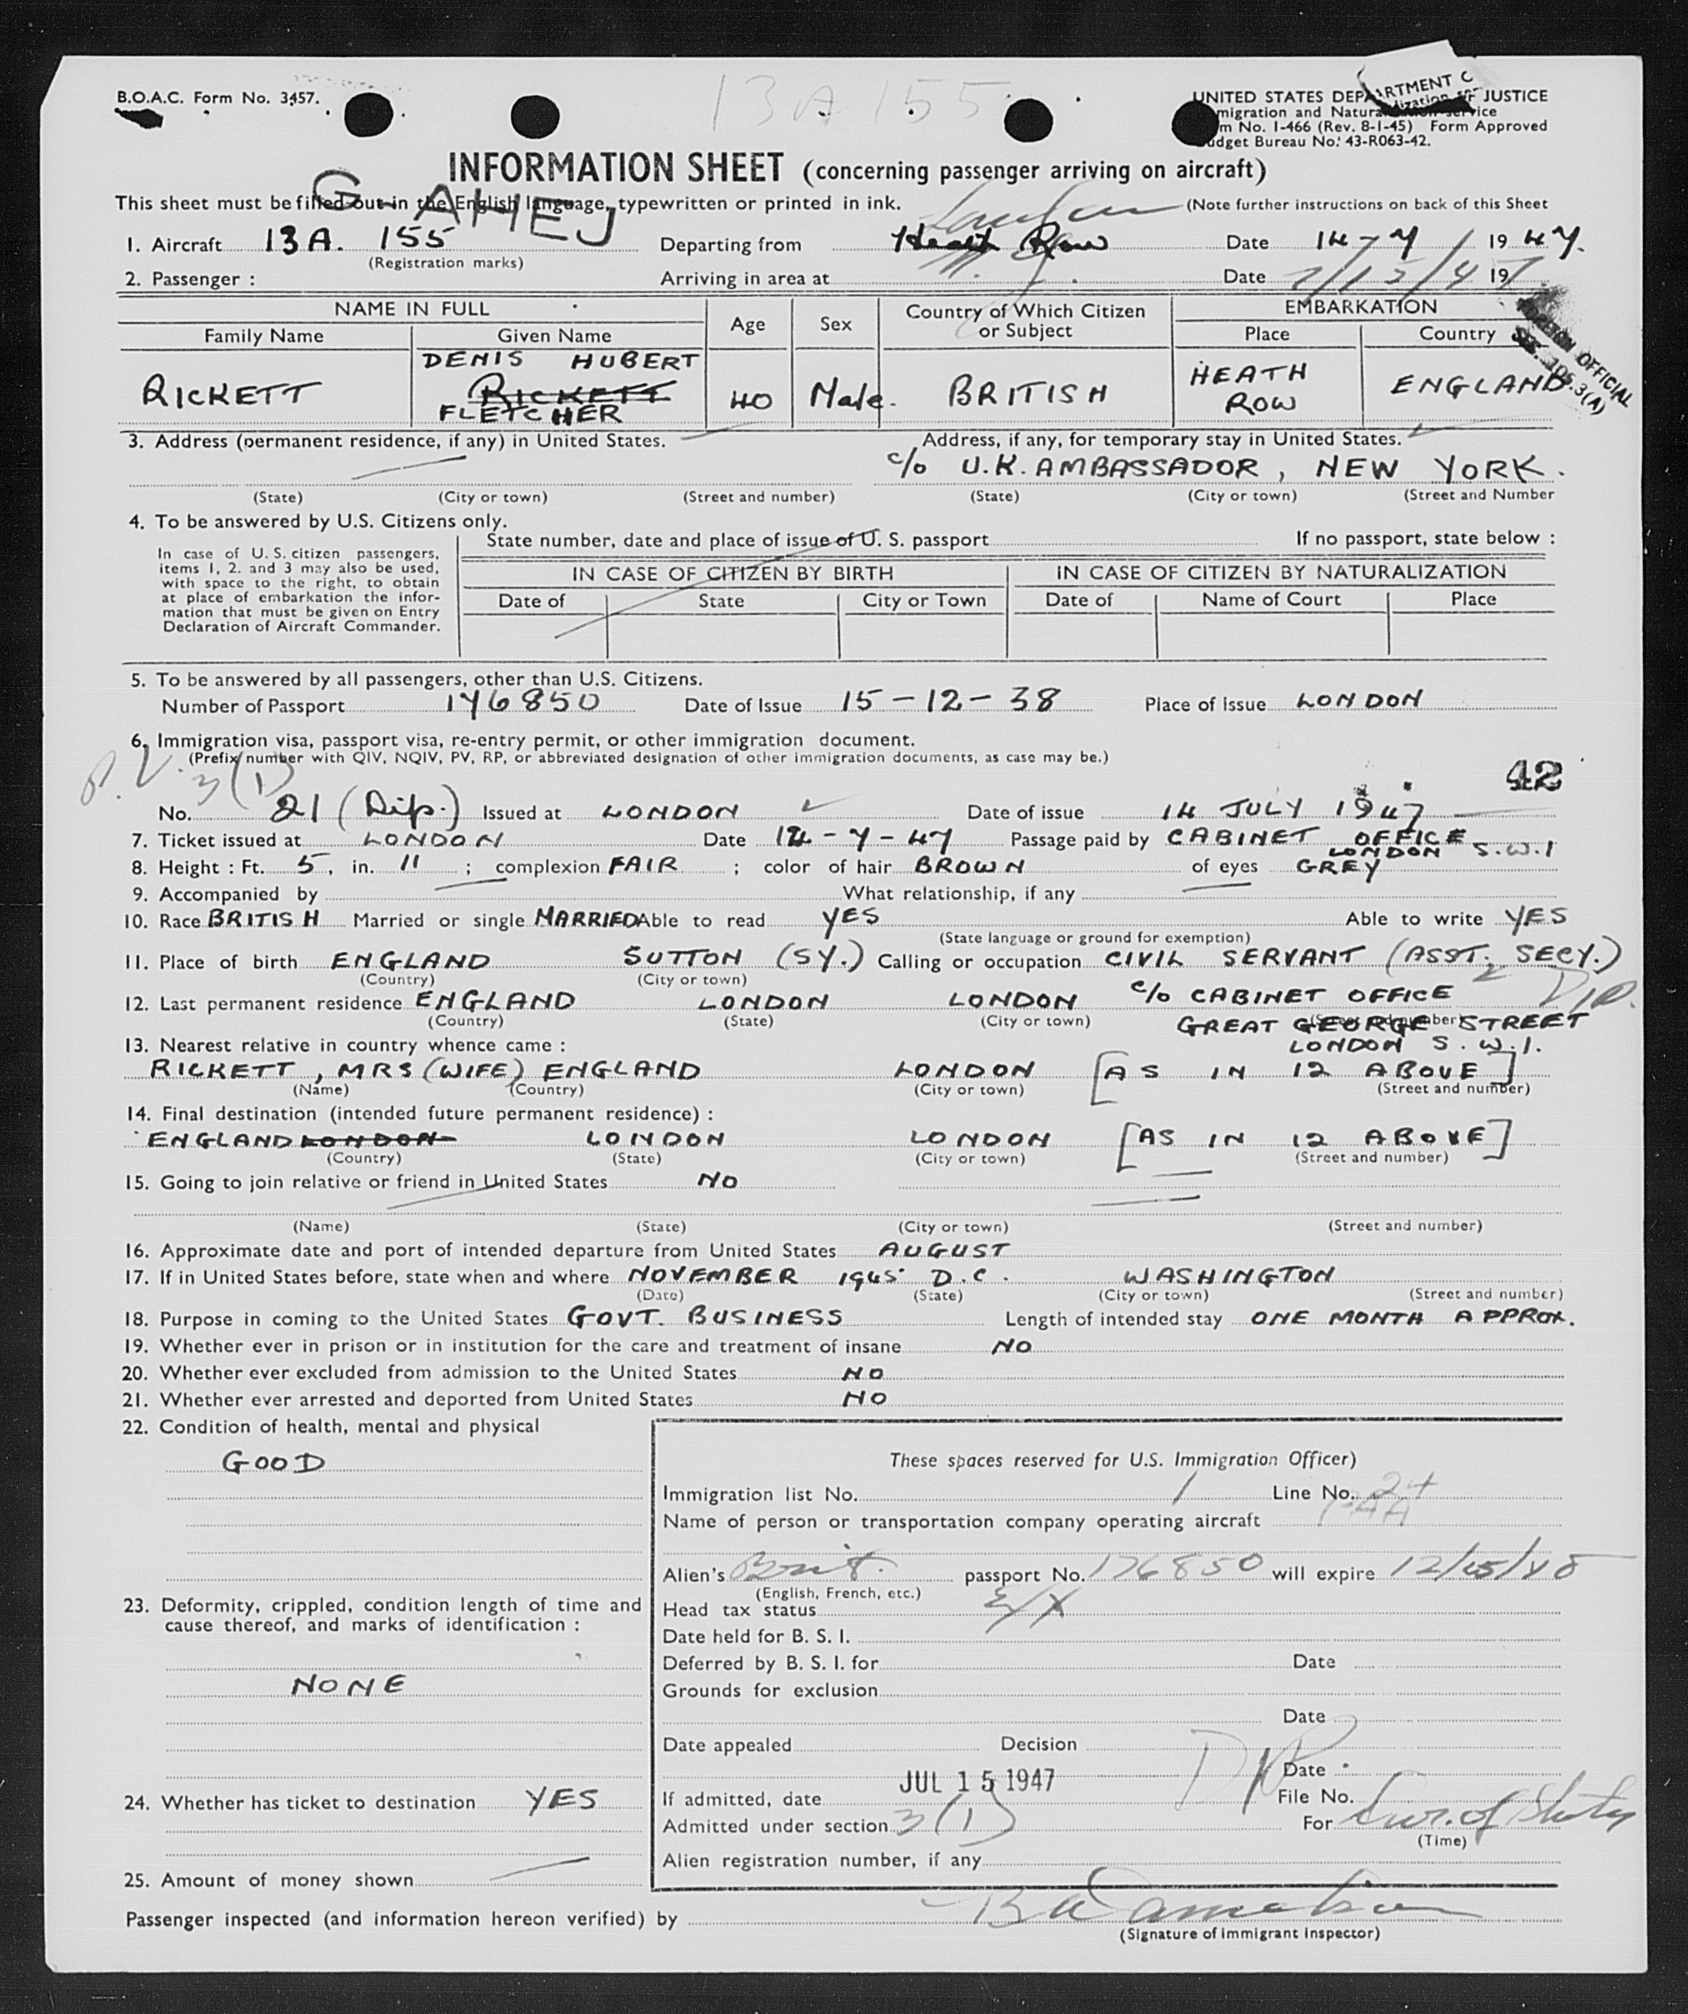 13A 155
B.O.A.C. Form No. 3457.
UNITED STATES DEPARTMENT OF JUSTICE
migration and Natural Service
m No. I-466 (Rev. 8-1-45) Form Approved
udget Bureau No. 43-R063-42.
INFORMATION SHEET (concerning passenger arriving on aircraft)
G-AHEJ
This sheet must be filled out in the English language, typewritten or printed in ink.
(Note further instructions on back of this Sheet
London
1. Aircraft 13A. 155 Departing from Heath Row Date 14-7 1947.
(Registration marks)
2. Passenger : Arriving in area at N.Y. Date 7/15/47 19
NAME IN FULL Age Sex Country of Which Citizen or Subject EMBARKATION
Family Name Given Name Place Country
RICKETT DENIS HUBERT RICKETT FLETCHER 40 Male. BRITISH HEATH ROW ENGLAND
FOREIGN OFFICIAL
SEC. 3(A)
3. Address (permanent residence, if any) in United States. Address, if any, for temporary stay in United States.
c/o U.K. AMBASSADOR, NEW YORK.
(State) (City or town) (Street and number) (State) (City or town) (Street and Number
4. To be answered by U.S. Citizens only.
In case of U.S. citizen passengers, items 1, 2. and 3 may also be used, with space to the right, to obtain at place of embarkation the infor-mation that must be given on Entry Declaration of Aircraft Commander.
State number, date and place of issue of U. S. passport If no passport, state below :
IN CASE OF CITIZEN BY BIRTH IN CASE OF CITIZEN BY NATURALIZATION
Date of State City or Town Date of Name of Court Place
5. To be answered by all passengers, other than U.S. Citizens.
Number of Passport 176850 Date of Issue 15-12-38 Place of issue LONDON
6. Immigration visa, passport visa, re-entry permit, or other immigration document.
(Prefix number with QIV, NQIV, PV, RP, or abbreviated designation of other immigration documents, as case may be.)
P.V. 3(1)
42
No. 21 (Dip.) Issued at LONDON Date of issue 14 JULY 1947
7. Ticket issued at LONDON Date 14-7-47 Passage paid by CABINET OFFICE
LONDON S.W.1
8. Height : Ft. 5, in. 11 ; complexion FAIR ; color of hair BROWN of eyes GREY
9. Accompanied by What relationship, if any
10. Race BRITISH Married or single MARRIED Able to read YES Able to write YES
(State language or ground for exemption)
11. Place of birth ENGLAND SUTTON (SY.) Calling or occupation CIVIL SERVANT (ASST. SECY.)
(Country) (City or town)
12. Last permanent residence ENGLAND LONDON LONDON c/o CABINET OFFICE
(Country) (State) (City or town) (Street and number)
GREAT GEORGE STREET
LONDON S.W.1.
13. Nearest relative in country whence came :
RICKETT, MRS (WIFE) ENGLAND LONDON [AS IN 12 ABOVE]
(Name) (Country) (City or town) (Street and number)
14. Final destination (intended future permanent residence) :
ENGLAND LONDON LONDON LONDON [AS IN 12 ABOVE]
(Country) (State) (City or town) (Street and number)
15. Going to join relative or friend in United States NO
(Name) (State) (City or town) (Street and number)
16. Approximate date and port of intended departure from United States AUGUST
17. If in United States before, state when and where NOVEMBER 1945 D.C. WASHINGTON
(Date) (State) (City or town) (Street and number)
18. Purpose in coming to the United States GOVT. BUSINESS Length of intended stay ONE MONTH APPROX.
19. Whether ever in prison or in institution for the care and treatment of insane NO
20. Whether ever excluded from admission to the United States NO
21. Whether ever arrested and deported from United States NO
22. Condition of health, mental and physical
GOOD
23. Deformity, crippled, condition length of time and cause thereof, and marks of identification :
NONE
24. Whether has ticket to destination YES
25. Amount of money shown
These spaces reserved for U.S. Immigration Officer)
Immigration list No. 1 Line No. 24
Name of person or transportation company operating aircraft
Alien's Brit. passport No. 176850 will expire 12/15/48
(English, French, etc.)
Head tax status E/X
Date held for B. S. I.
Deferred by B. S. I. for Date
Grounds for exclusion
Date
Date appealed Decision
Date
If admitted, date JUL 15 1947 File No.
Admitted under section 3(1) For Dur. of Status
(Time)
Alien registration number, if any
Passenger inspected (and information hereon verified) by
(Signature of Immigrant Inspector)